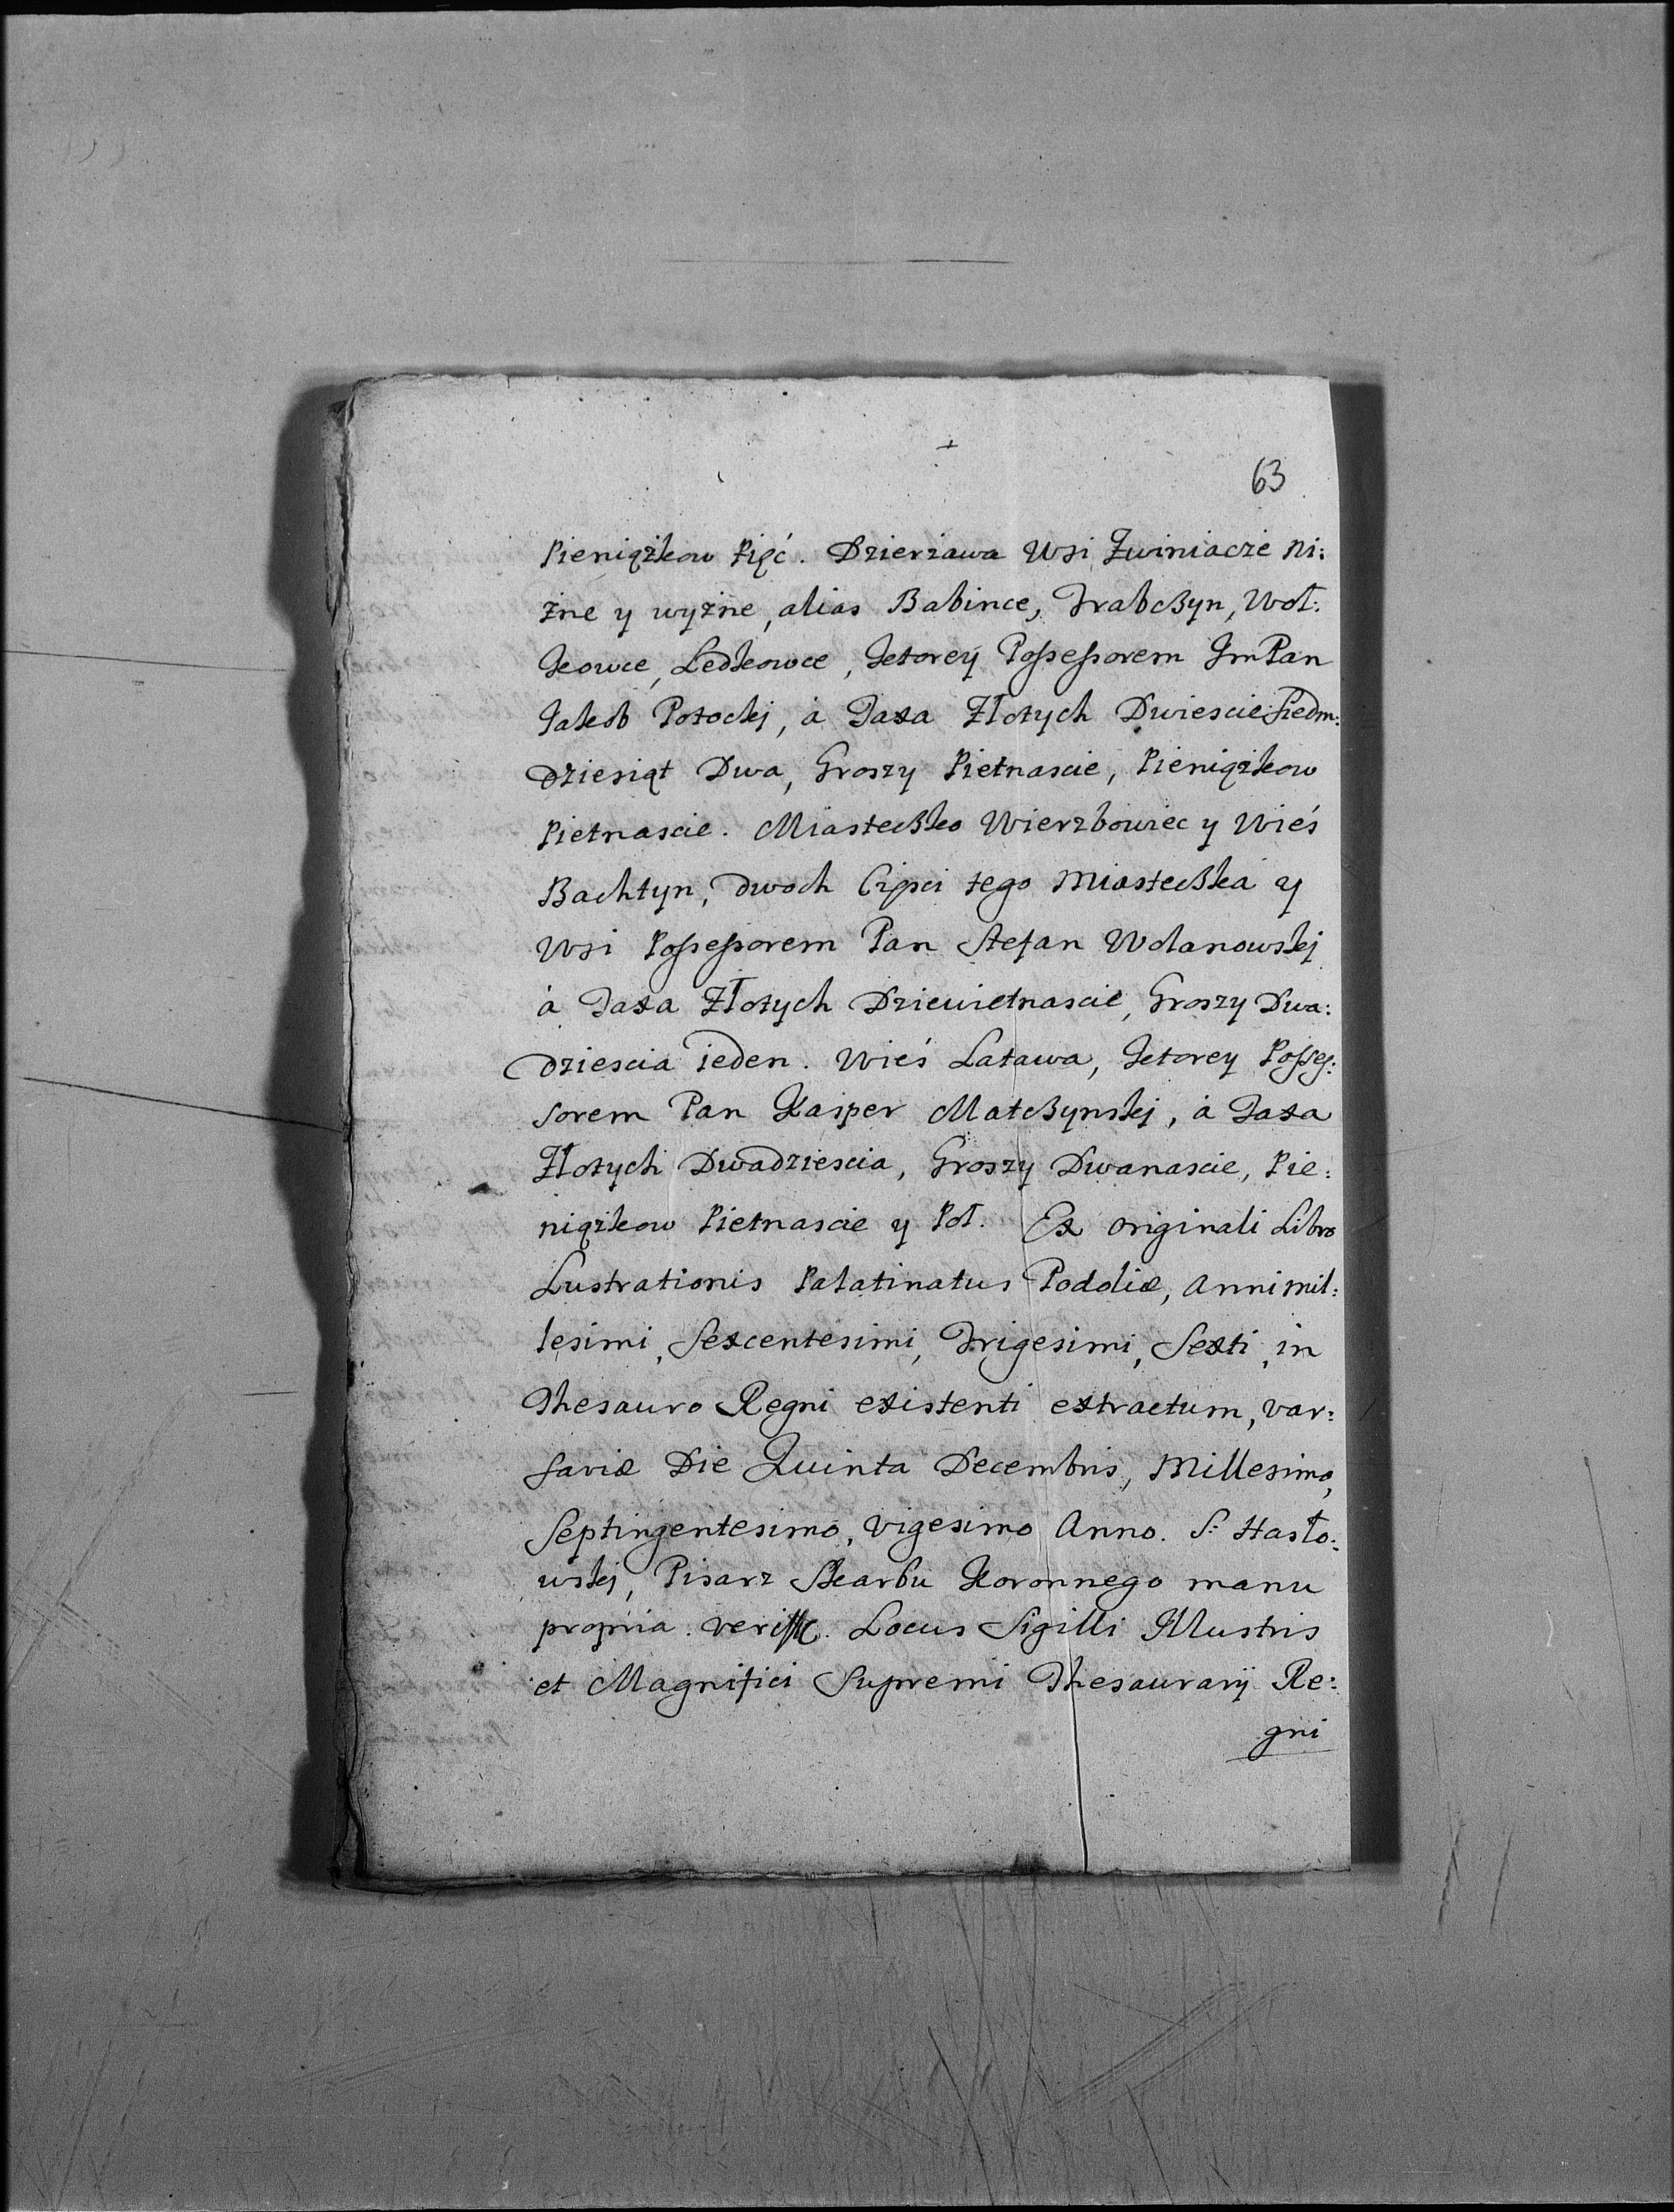 63
Pieniążkow Pięć. Dzierżawa Wsi Zwiniacze Ni:
żne y wyżne, alias Babince, Trabczyn, Woł:
kowce, Ledkowce, ktorey Possessorem Jm Pan
Jakob Potockj, à Taxa Złotych Dwiescie Siedm:
dziesiąt Dwa, Groszy Pietnascie, Pieniążkow
Pietnascie. Miasteczko Wierzbowiec y Wieś
Bachtyn, dwoch Częsci tego Miasteczka y
Wsi Possessorem Pan Stefan Wolanowskj
à Taxa Złotych Dziewietnascie, Groszy Dwa:
dziescia ieden. Wieś Latawa, ktorey Posses:
sorem Pan Kasper Matczynskj, à Taxa
Złotych Dwadziescia, Groszy Dwanascie, Pie:
niążkow Pietnascie y Poł. Ex originali Libro
Lustrationis Palatinatus Podoliæ, Anni Mil:
lesimi, Sexcentesimi, Trigesimi, Sexti, in
Thesauro Regni existenti extractum, Var:
saviæ Die Quinta Decembris, Millesimo,
Septingentesimo, Vigesimo Anno. S: Hasło:
wskj, Pisarz Skarbu Koronnego manu
propria. Locus Sigilli Illustris
et Magnifici Supremi Thesaurarij Re:
gni